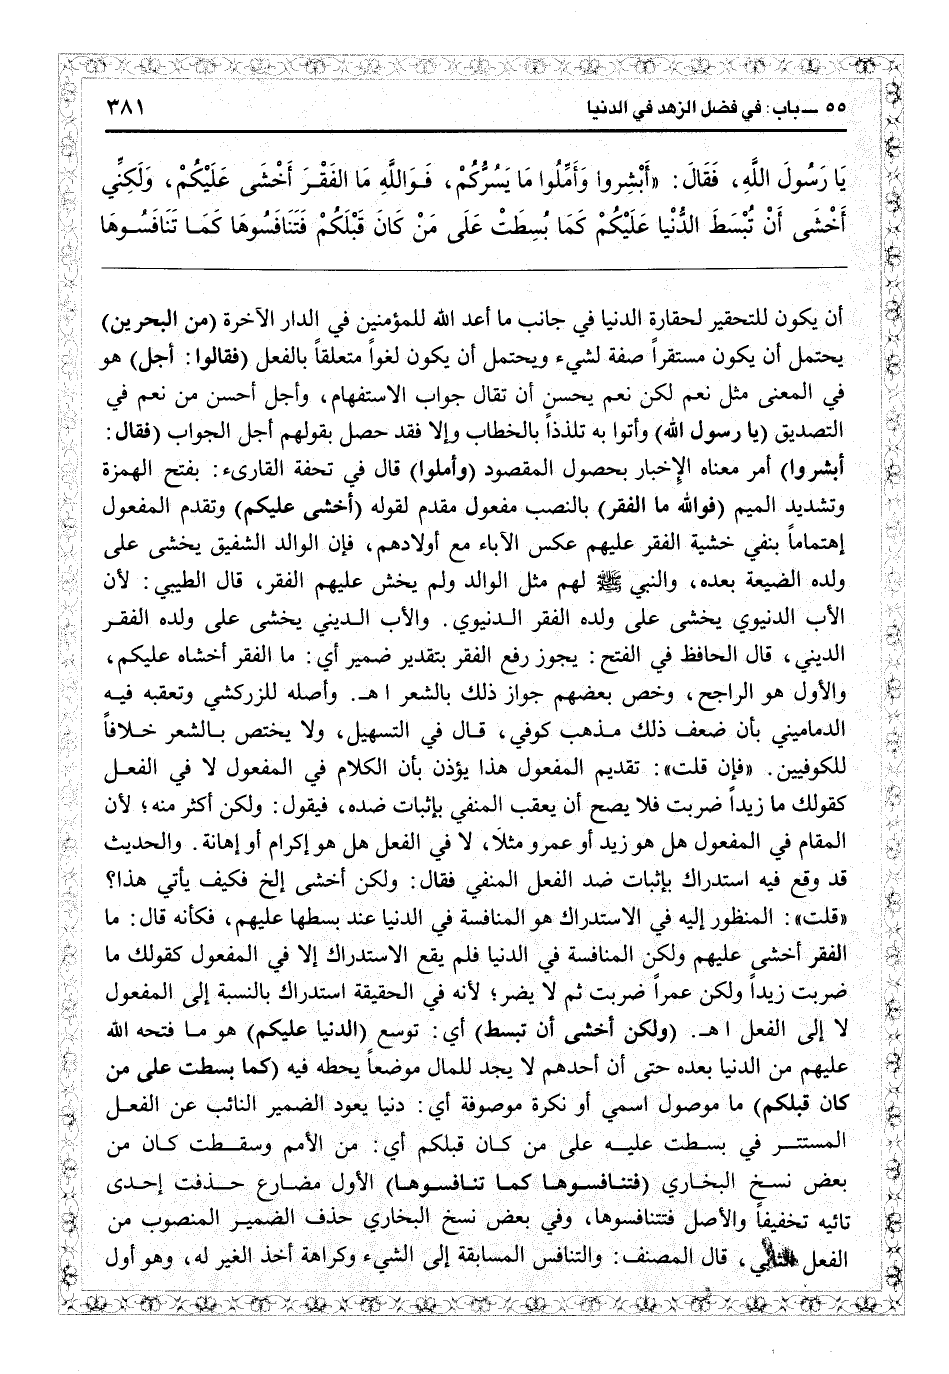 ٥٥ ــ باب: في فضل الزهد في الدنيا
٣٨١
يَا رَسُولَ اللَّهِ، فَقَالَ: «أَبْشِروا وَأَمِّلُوا مَا يَسُرُّكُمْ، فَوَاللَّهِ مَا الفَقْرَ أَخْشَى عَلَيْكُمْ، وَلَكِنِّي
أَخْشَى أَنْ تُبْسَطَ الدُّنْيا عَلَيْكُمْ كَمَا بُسِطَتْ عَلَى مَنْ كَانَ قَبْلَكُمْ فَتَنَافَسُوهَا كَمَا تَنَافَسُوهَا
أن يكون للتحقير لحقارة الدنيا في جانب ما أعد الله للمؤمنين في الدار الآخرة (من البحرين)
يحتمل أن يكون مستقراً صفة لشيء ويحتمل أن يكون لغواً متعلقاً بالفعل (فقالوا: أجل) هو
في المعنى مثل نعم لكن نعم يحسن أن تقال جواب الاستفهام، وأجل أحسن من نعم في
التصديق (يا رسول الله) وأتوا به تلذذاً بالخطاب وإلا فقد حصل بقولهم أجل الجواب (فقال:
أبشروا) أمر معناه الإخبار بحصول المقصود (وأملوا) قال في تحفة القارىء: بفتح الهمزة
وتشديد الميم (فوالله ما الفقر) بالنصب مفعول مقدم لقوله (أخشى عليكم) وتقدم المفعول
إهتماماً بنفي خشية الفقر عليهم عكس الآباء مع أولادهم، فإن الوالد الشفيق يخشى على
ولده الضيعة بعده، والنبي ﷺ لهم مثل الوالد ولم يخش عليهم الفقر، قال الطيبي: لأن
الأب الدنيوي يخشى على ولده الفقر الدنيوي. والأب الديني يخشى على ولده الفقر
الديني، قال الحافظ في الفتح: يجوز رفع الفقر بتقدير ضمير أي: ما الفقر أخشاه عليكم،
والأول هو الراجح، وخص بعضهم جواز ذلك بالشعر ا هـ. وأصله للزركشي وتعقبه فيه
الدماميني بأن ضعف ذلك مذهب كوفي، قال في التسهيل، ولا يختص بالشعر خلافاً
للكوفيين. «فإن قلت»: تقديم المفعول هذا يؤذن بأن الكلام في المفعول لا في الفعل
كقولك ما زيداً ضربت فلا يصح أن يعقب المنفي بإثبات ضده، فيقول: ولكن أكثر منه؛ لأن
المقام في المفعول هل هو زيد أو عمرو مثلاً، لا في الفعل هل هو إكرام أو إهانة. والحديث
قد وقع فيه استدراك بإثبات ضد الفعل المنفي فقال: ولكن أخشى إلخ فكيف يأتي هذا؟
«قلت»: المنظور إليه في الاستدراك هو المنافسة في الدنيا عند بسطها عليهم، فكأنه قال: ما
الفقر أخشى عليهم ولكن المنافسة في الدنيا فلم يقع الاستدراك إلا في المفعول كقولك ما
ضربت زيداً ولكن عمراً ضربت ثم لا يضر؛ لأنه في الحقيقة استدراك بالنسبة إلى المفعول
لا إلى الفعل ا هـ. (ولكن أخشى أن تبسط) أي: توسع (الدنيا عليكم) هو ما فتحه الله
عليهم من الدنيا بعده حتى أن أحدهم لا يجد للمال موضعاً يحطه فيه (كما بسطت على من
كان قبلكم) ما موصول اسمي أو نكرة موصوفة أي: دنيا يعود الضمير النائب عن الفعل
المستتر في بسطت عليه على من كان قبلكم أي: من الأمم وسقطت كان من
بعض نسخ البخاري (فتنافسوها كما تنافسوها) الأول مضارع حذفت إحدى
تائيه تخفيفاً والأصل فتتنافسوها، وفي بعض نسخ البخاري حذف الضمير المنصوب من
الفعل الثاني، قال المصنف: والتنافس المسابقة إلى الشيء وكراهة أخذ الغير له، وهو أول